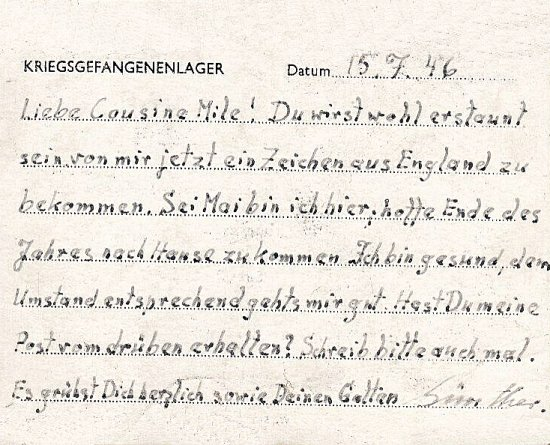 KRIEGSGEFANGENENLAGER Datum 15. 7. 46
Liebe Cousine Mile! Du wirst wohl erstaunt
sein von mir jetzt ein Zeichen aus England zu
bekommen. Sei Mai bin ich hier, hoffe Ende des
Jahres nach Hause zu kommen Ich bin gesund, dem
Umstand entsprechend gehts mir gut. Hast Du meine
Post vom drüben erhalten? Schreib bitte auch mal.
Es grüßt Dich herzlich sowie Deinen Gatten Günther.